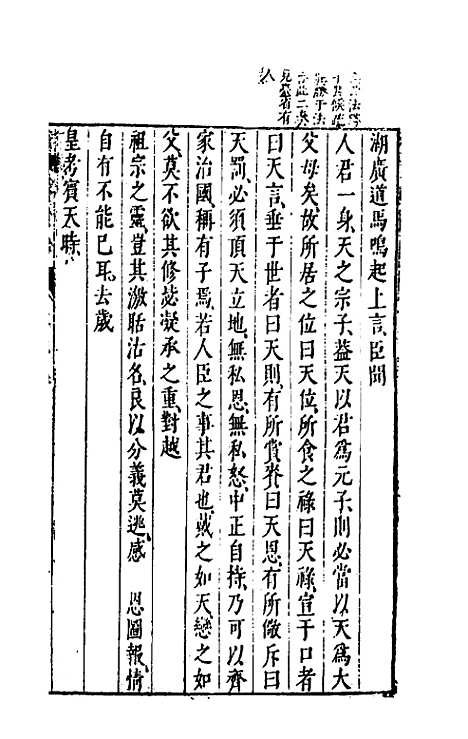 湖廣道馬鳴起上言臣聞
人君一身天之宗子蓋天以君爲元子則必當以天爲大
父母矣故所居之位曰天位所食之祿曰天祿宣于口者
曰天言垂于世者曰天則有所賞賚曰天恩有所儆斥曰
天罰必須頂天立地無私恩無私怒中正自持乃可以齊
家治國稱有子焉若人臣之事其君也戴之如天戀之如
父莫不欲其修諡凝承之重對越
祖宗之靈豈其激聒沽名良以分義莫逃感 恩圖報情
自有不能已耳去歲
皇考賓天時
見臺省有
人